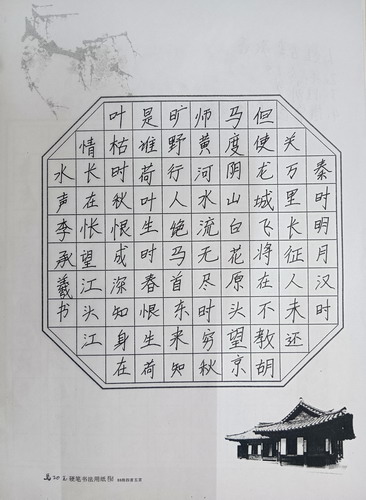 秦时明月汉时
关万里长征人未还
但使龙城飞将在不教胡
马度阴山白花原头望京
师黄河水流无尽时穷秋
旷野行人绝马首东来知
是谁荷叶生时春恨生荷
叶枯时秋恨成深知身在
情长在怅望江头江
水声李承羲书
硬笔书法用纸